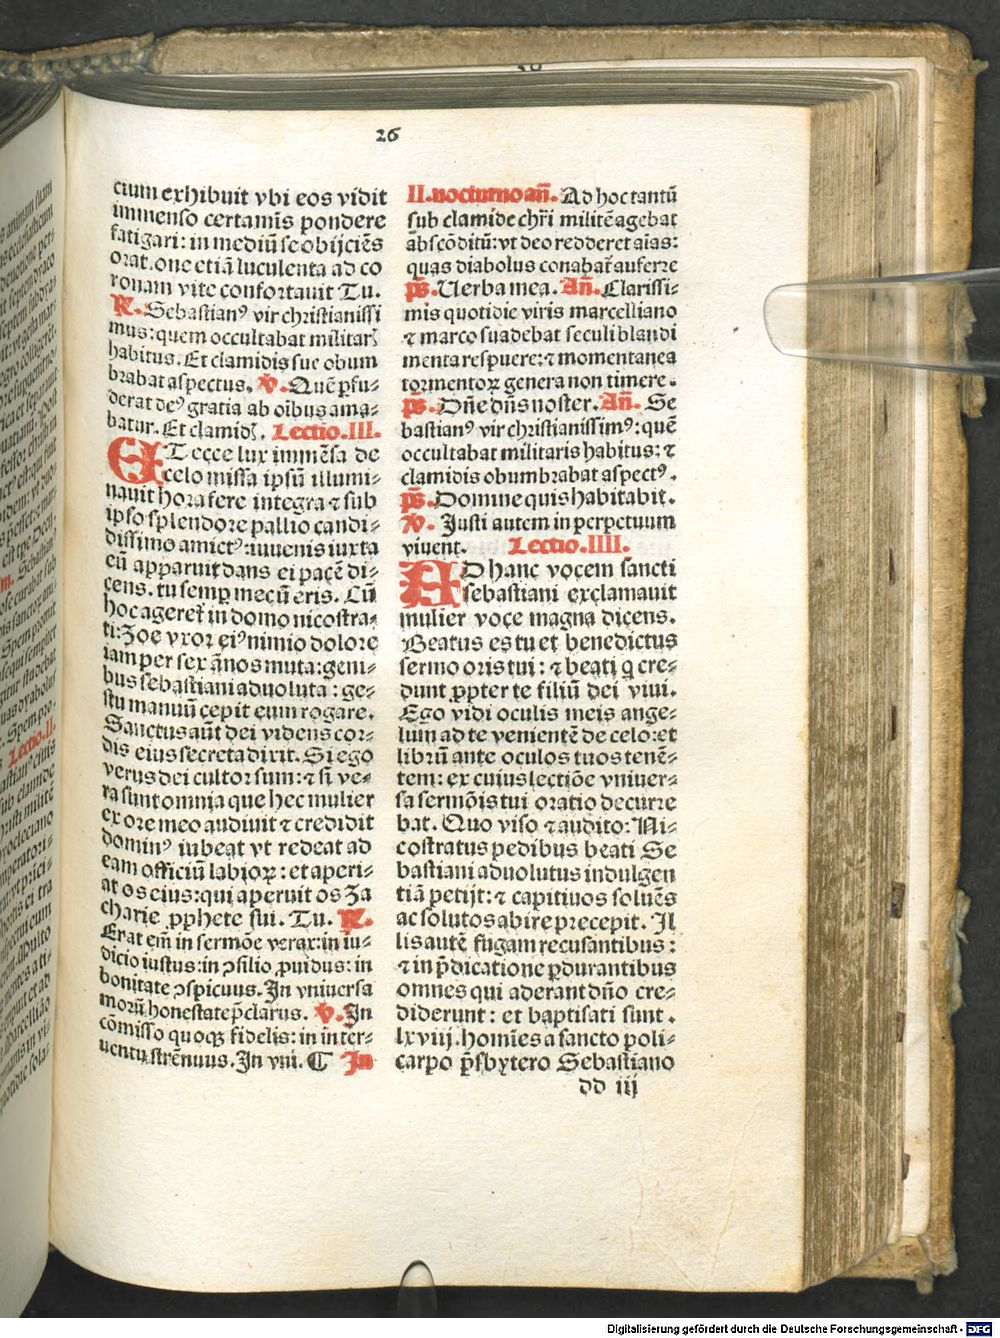 26
cium exhibuit vbi eos vidit
immenso certamīs pondere
fatigari: in mediū se obijciēs
orat.one etiā luculenta ad co
ronam vite confortauit Tu.
℟. Sebastianꝰ vir christianissi
mus: quem occultabat militarꝭ
habitus. Et clamidis sue obum
brabat aspectus. ℣. Quē ꝑfu⸗
derat deꝰ gratia ab oībus ama⸗
batur. Et clamidꝭ. Lectio.III.
ET ecce lux immēsa de
celo missa ipsū illumi⸗
nauit hora fere integra ⁊ sub
ipso splendore pallio candi⸗
dissimo amictꝰ: iuuenis iuxta
eū apparuit dans ei pacē di⸗
cens. tu semꝑ mecū eris. Cū
hoc ageret̄ in domo nicostra⸗
ti: Zoe vxor eiꝰ nimio dolore
iam per sex ānos muta: geni⸗
bus sebastiani aduoluta: ge⸗
stu manuū cepit eum rogare.
Sanctus aūt dei videns cor⸗
dis eius secreta dixit. Si ego
verus dei cultor sum: ⁊ si ve⸗
ra sunt omnia que hec mulier
ex ore meo audiuit ⁊ credidit
dominꝰ iubeat vt redeat ad
eam officiū labioꝝ: et aperi⸗
at os eius: qui aperuit os Za
charie ꝓphete sui. Tu. ℟.
Erat em̄ in sermōe verax: in iu⸗
dicio iustus: in ꝯsilio ꝓuidus: in
bonitate ꝯspicuus. In vniuersa
morū honestate p̄clarus. ℣. In
cōmisso quoqꝫ fidelis: in inter⸗
uentu strēnuus. In vni. ₵ In
II. nocturno añ. Ad hoc tantū
sub clamide chr̄i militē agebat
abscōditū: vt deo redderet aīas:
quas diabolus conabat̄ auferre
p̄s. Uerba mea. Añ. Clarissi⸗
mis quotidie viris marcelliano
⁊ marco suadebat seculi blandi
menta respuere: ⁊ momentanea
tormentoꝝ genera non timere.
p̄s. Dn̄e dn̄s noster. Añ. Se
bastianꝰ vir christianissimꝰ: quē
occultabat militaris habitus: ⁊
clamidis obumbrabat aspectꝰ.
p̄s. Domine quis habitabit.
℣. Justi autem in perpetuum
viuent. Lectio.IIII.
AD hanc vocem sancti
sebastiani exclamauit
mulier voce magna dicens.
Beatus es tu et benedictus
sermo oris tui: ⁊ beati q cre⸗
dunt ꝓpter te filiū dei viui.
Ego vidi oculis meis ange⸗
lum ad te venientē de celo: et
librū ante oculos tuos tenē⸗
tem: ex cuius lectiōe vniuer⸗
sa sermōis tui oratio decurre
bat. Quo viso ⁊ audito: Ni⸗
costratus pedibus beati Se
bastiani aduolutus indulgen
tiā petijt: ⁊ captiuos soluēs
ac solutos abire precepit. Il
lis autē fugam recusantibus:
⁊ in p̄dicatione ꝑdurantibus
omnes qui aderant dn̄o cre⸗
diderunt: et baptisati sunt.
lxviij. homīes a sancto poli⸗
carpo p̄sbytero Sebastiano
dd iij
Digitalisierung gefördert durch die Deutsche Forschungsgemeinschaft - DFG